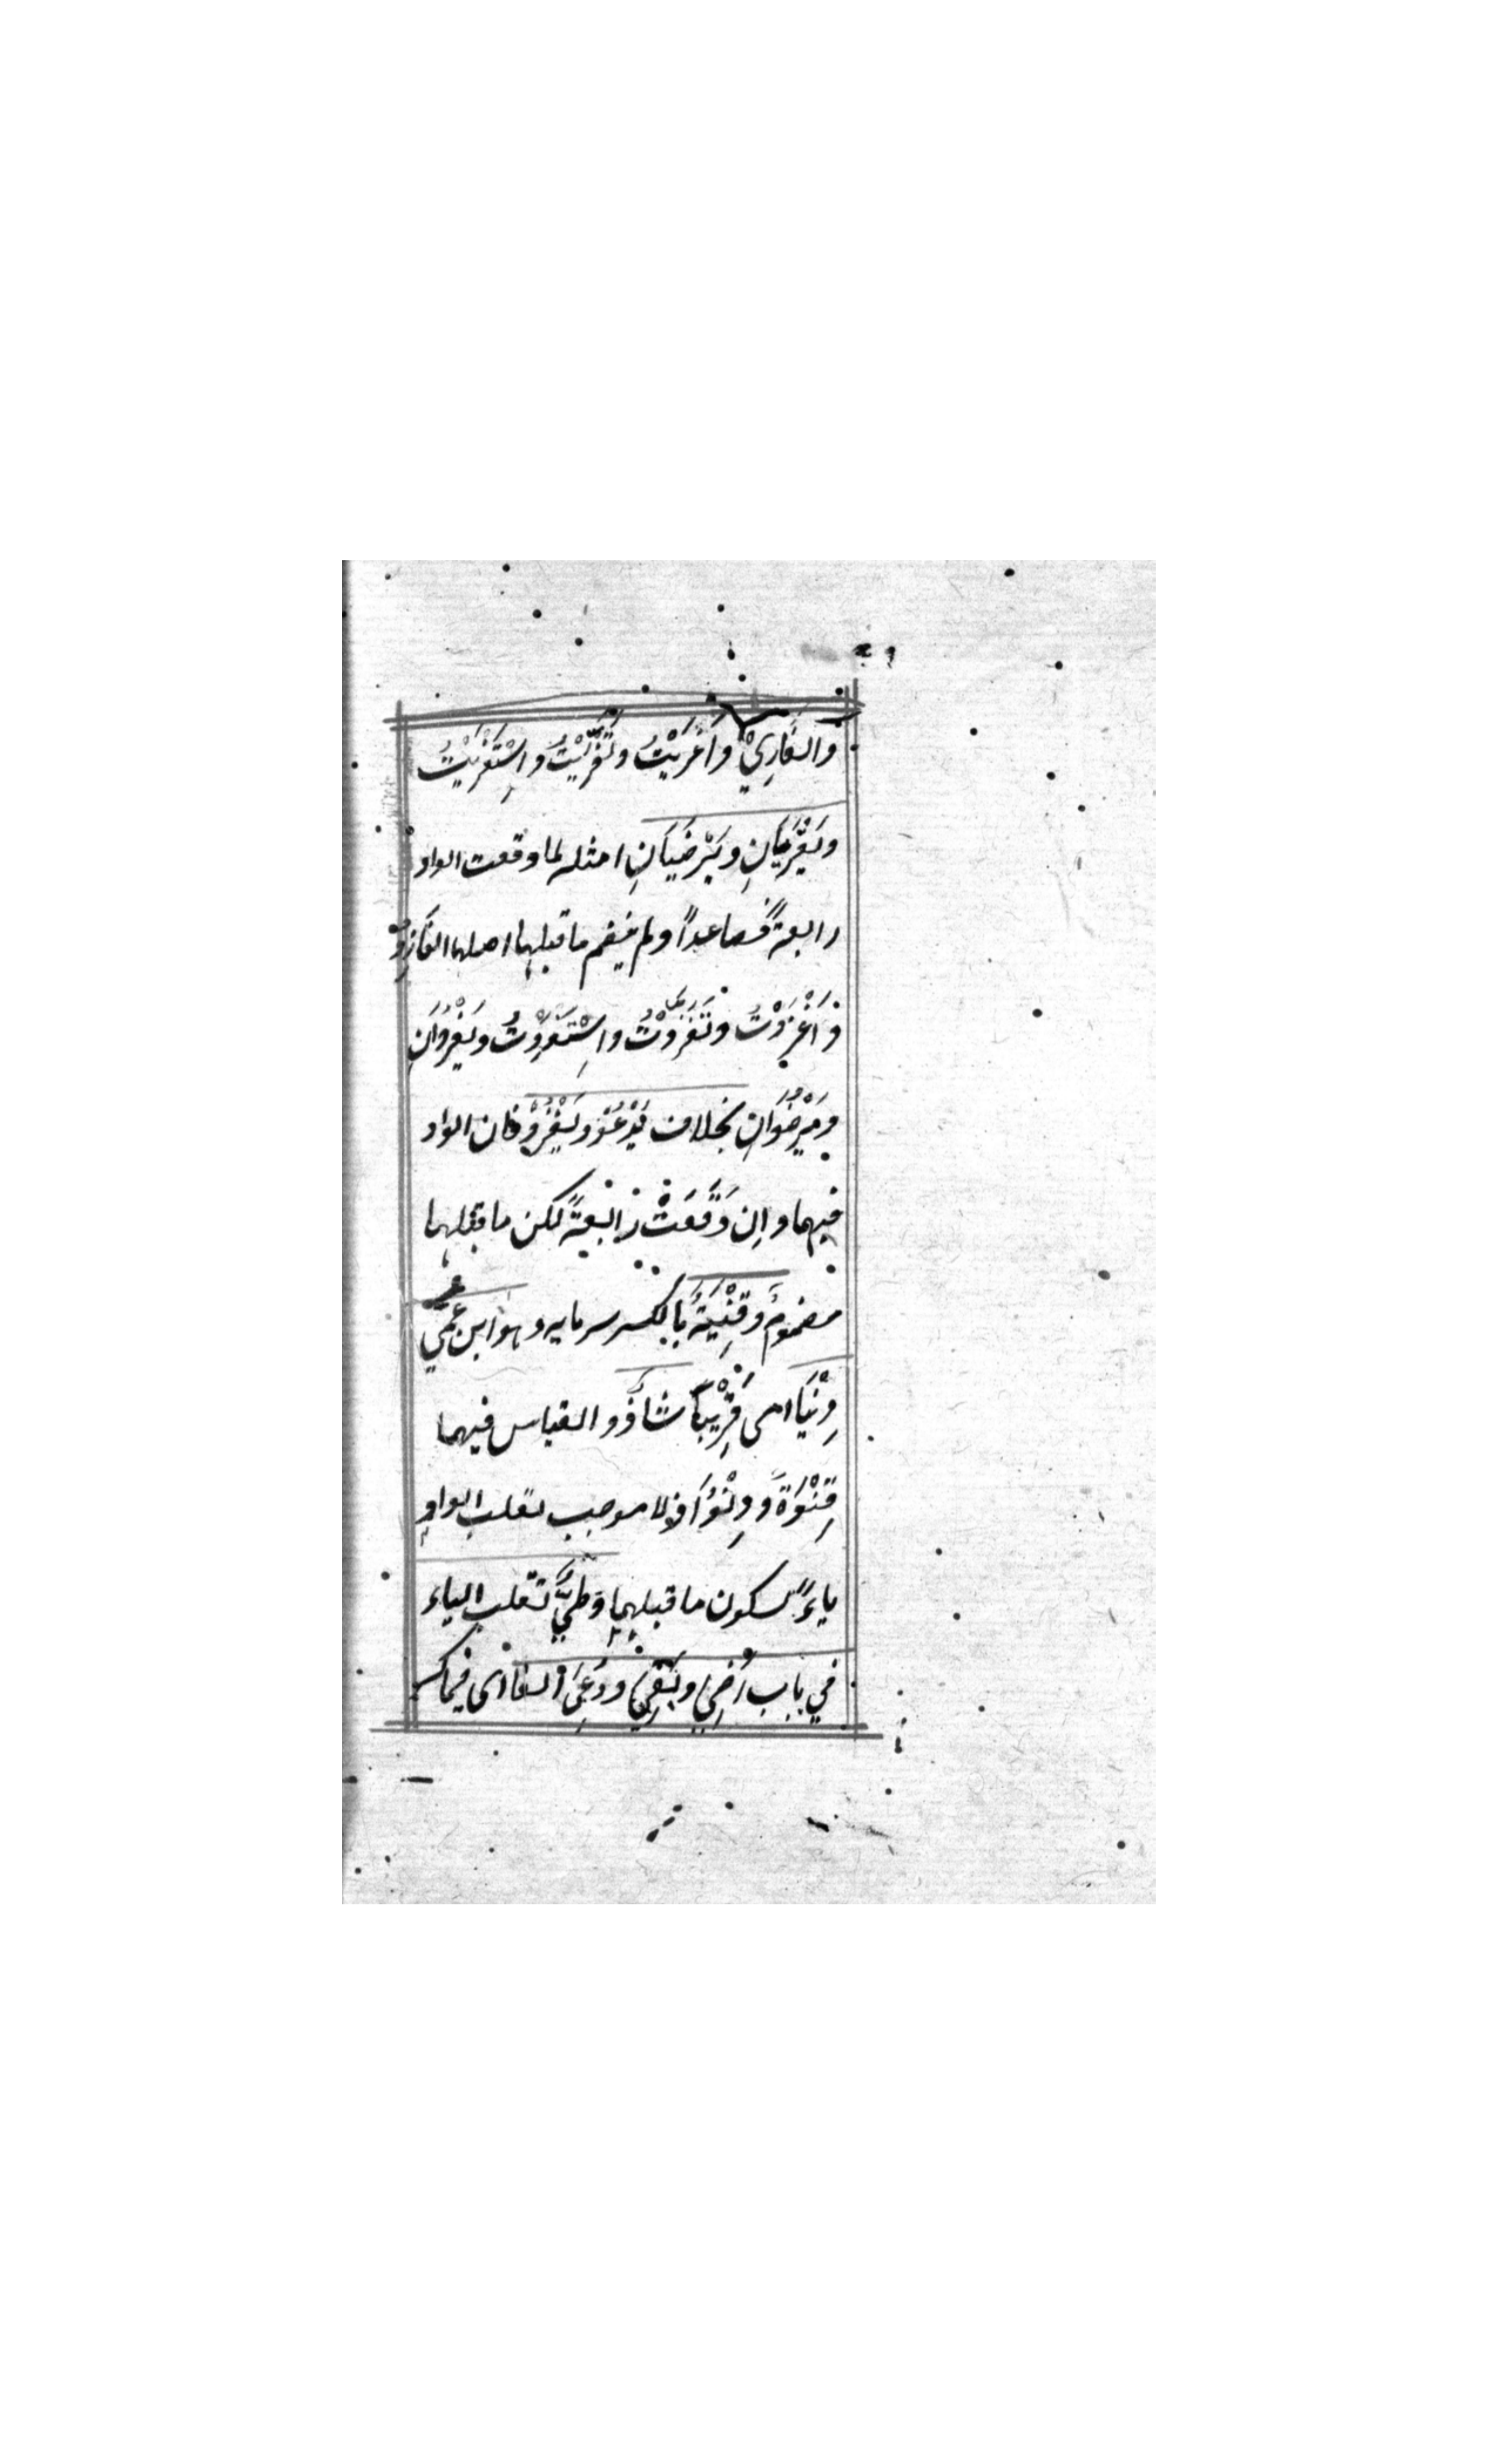 والغَازِيْ وَاَغْزَيْتُ وتَغَزَّيْتُ واِسْتَغْزَيْتُ
ويُغْزَيَانِ ويَرْضَيَانِ امثله لما وقعت الواو
رابعةً فصاعداً ولم ينضم ما قبلها اصلها الغَازِوُ
وَاَغْزَوْتُ وتَغَزَّوْتُ واِسْتَغْزَوْتُ ويُغْزَوَانِ
ويَرْضَوَانِ بخلاف يَدْعُوْ ويَغْزُوْ فان الواو
فيهما واِن وَقَعَتْ رَابعةً لكن ما قبلها
مضمومٌ وقِنْيَةٌ بالكسر سرمايه وهوَ ابن عَمِّي
دِنْيَا اى قَرِيْباً شاذٌ والقياس فيهما
قِنْوَةٌ ودِنْوًا اذ لا موجب لقلب الواوِ
ياءً لسكون ما قبلها وطيٌّ تقلب الياء
في باب رُضِيَ وبَقِيَ ودُعِيَ الفا اى فيما كسر